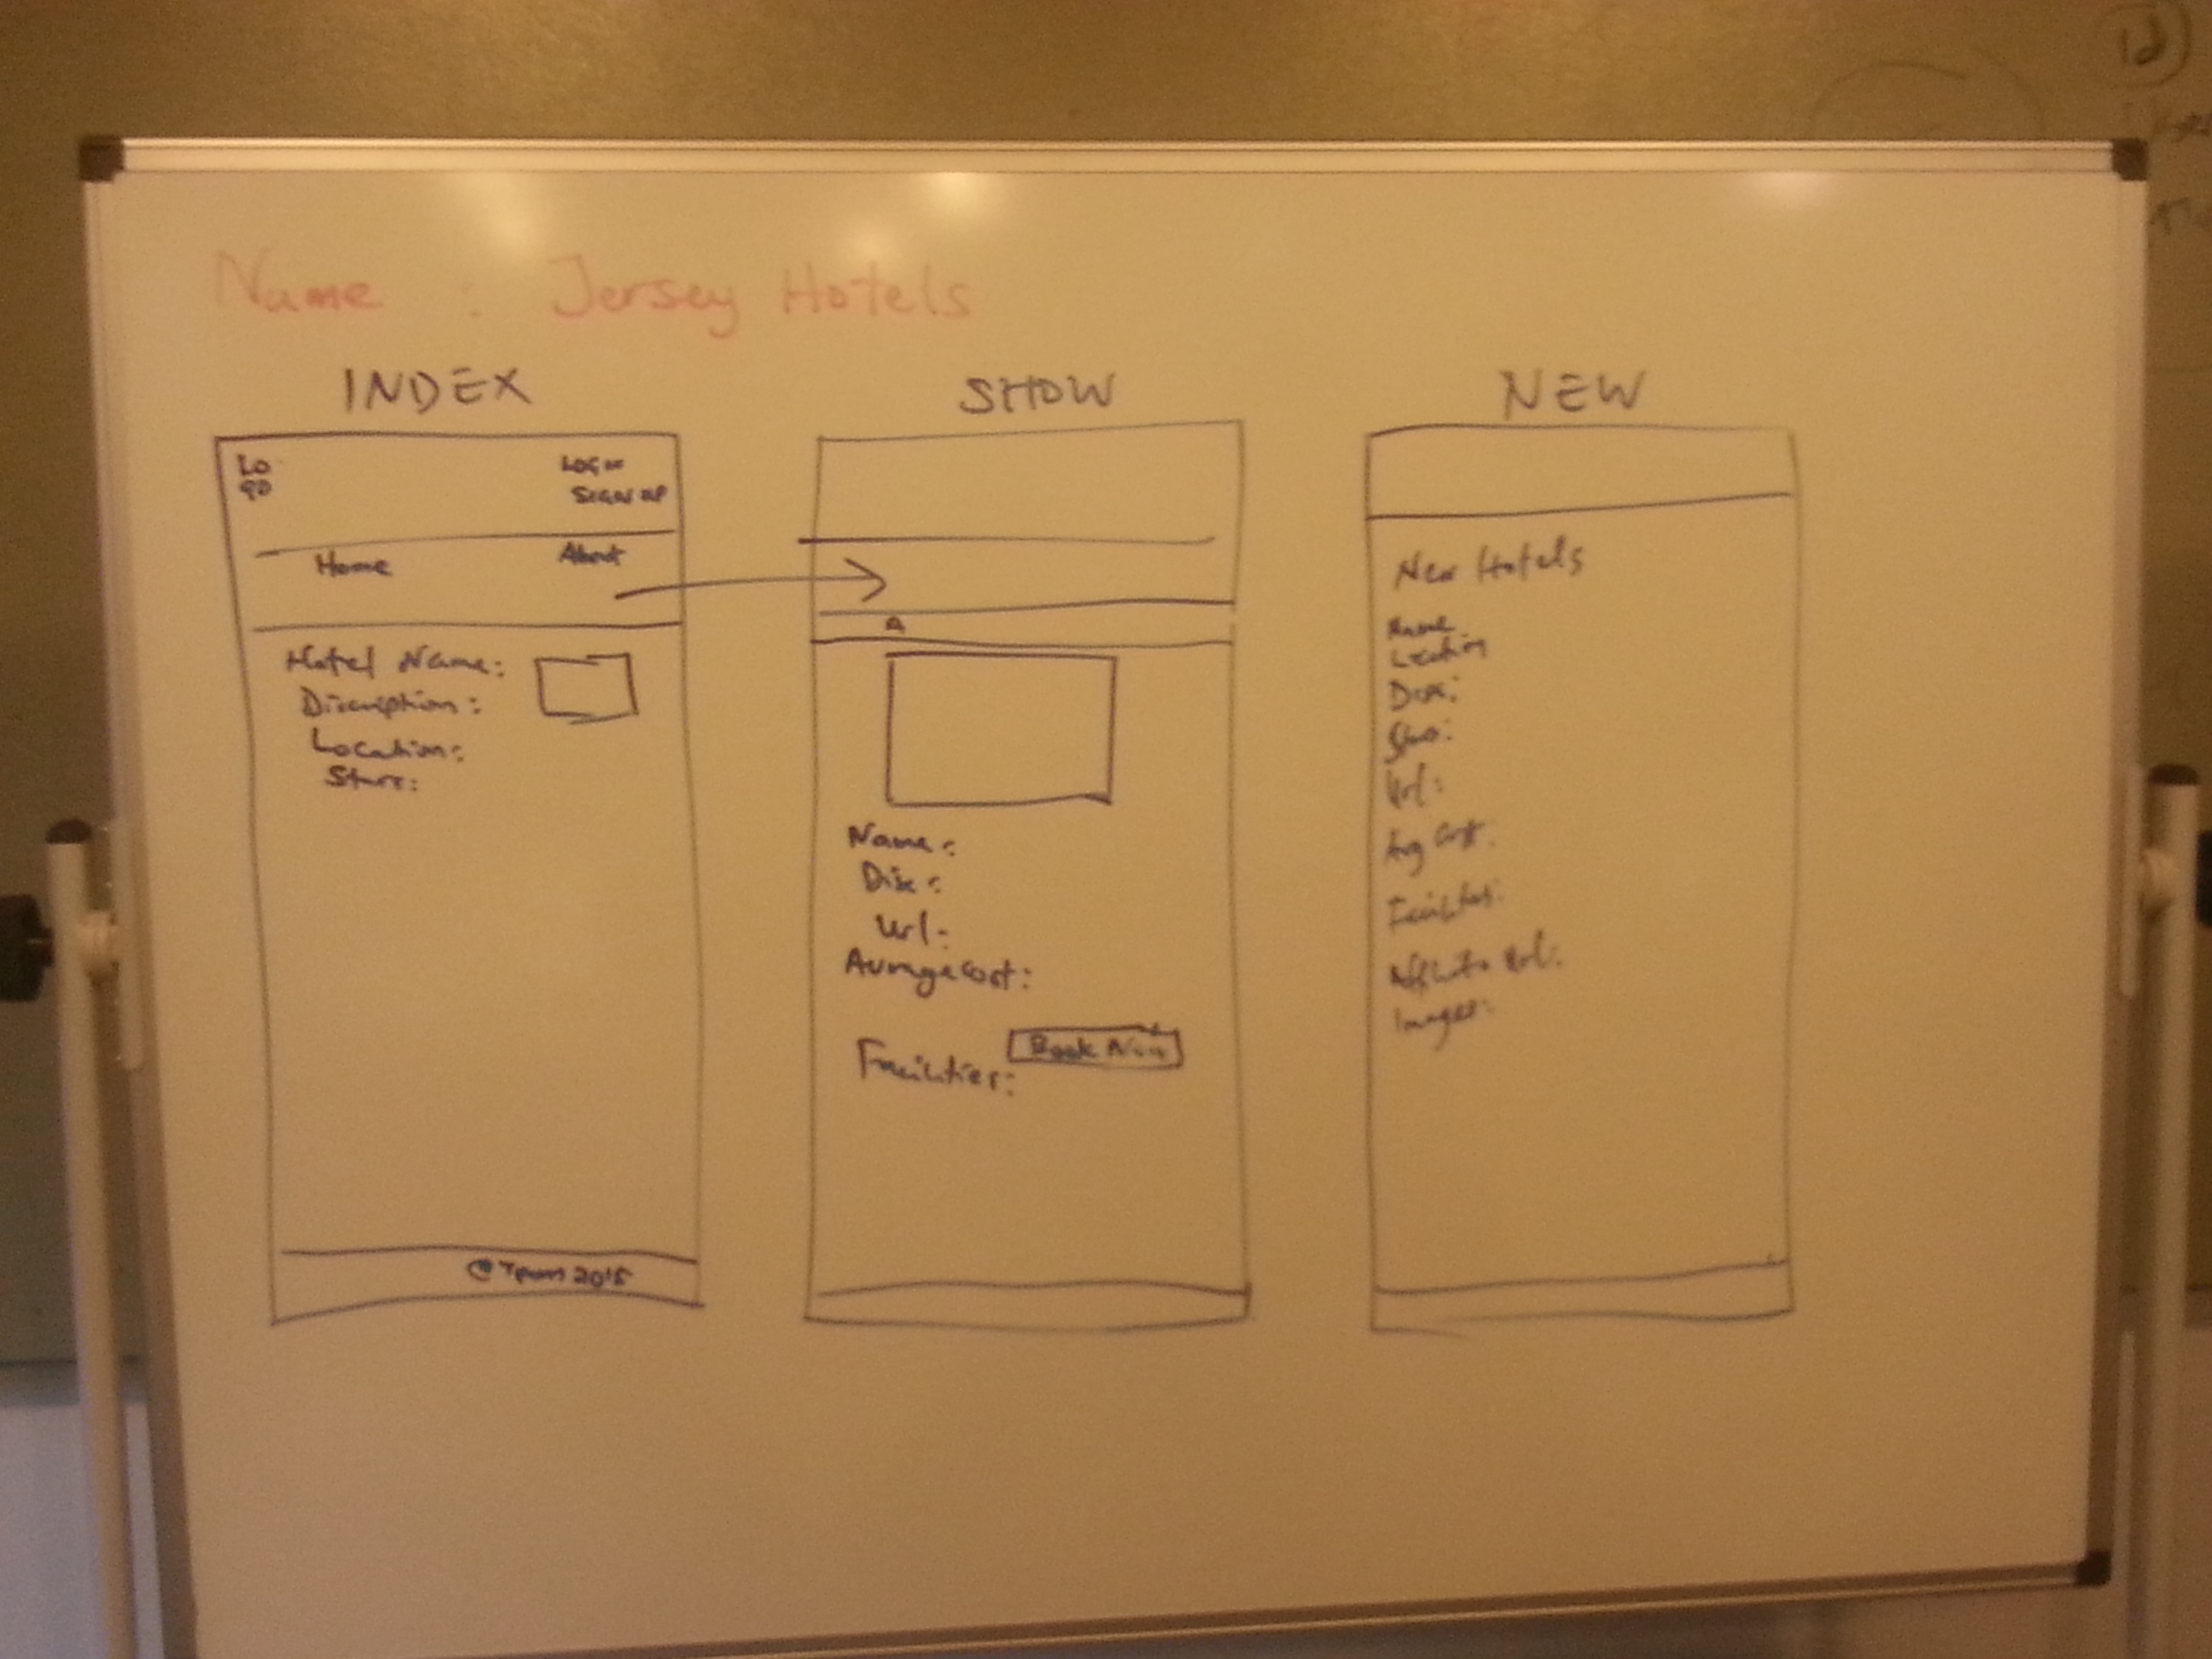 Name : Jersey Hotels
INDEX
LO
GO
LOGIN
SIGN UP
Home
About
Hotel Name:
Discription:
Location:
Stars:
© Team 2015
SHOW
Name:
Disc:
Url:
Average Cost:
Book Now
Facilities:
NEW
New Hotels
Name
Location
Disc:
Stars:
Url:
Avg Cost:
Facilities:
Affiliate Url:
Images: